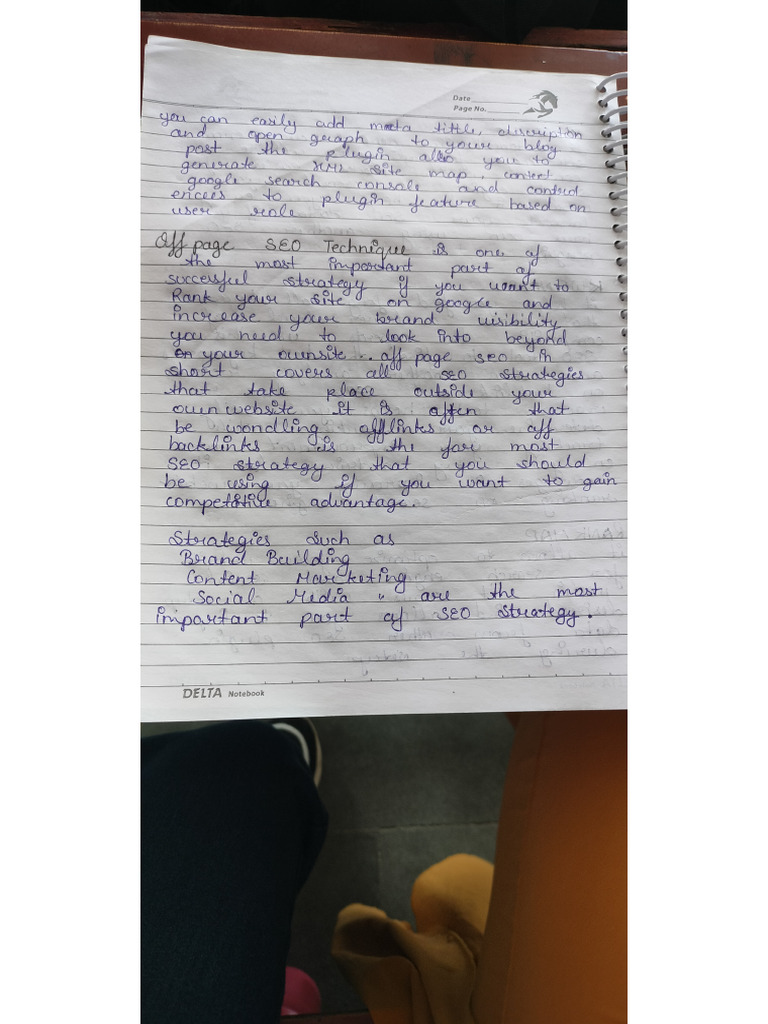 Date
Page No.
you can easily add meta tittle, discription
and open graph to your blog
post the plugin also you to
generate XML site map, connect
google search console and control
encees to plugin feature based on
user role
Off page SEO Technique is one of
the most important part of
successful strategy if you want to
Rank your site on google and
increase your brand visibility
you need to look into beyond
on your ownsite.. off page seo in
short covers all SEO strategies
that take place outside your
own website it is often that
be wondling offlinks or off
backlinks is the far most
SEO strategy that you should
be using if you want to gain
competitive advantage.
Strategies such as
Brand Building
Content Marketing
Social Media " are the most
important part of SEO strategy.
DELTA Notebook